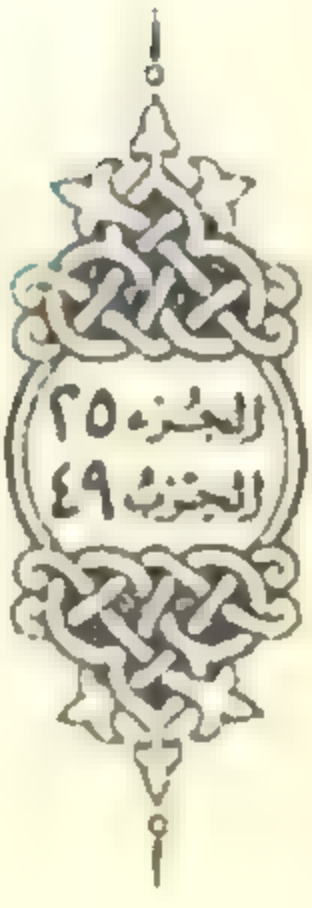 الجزء ٢٥
الحزب ٤٩